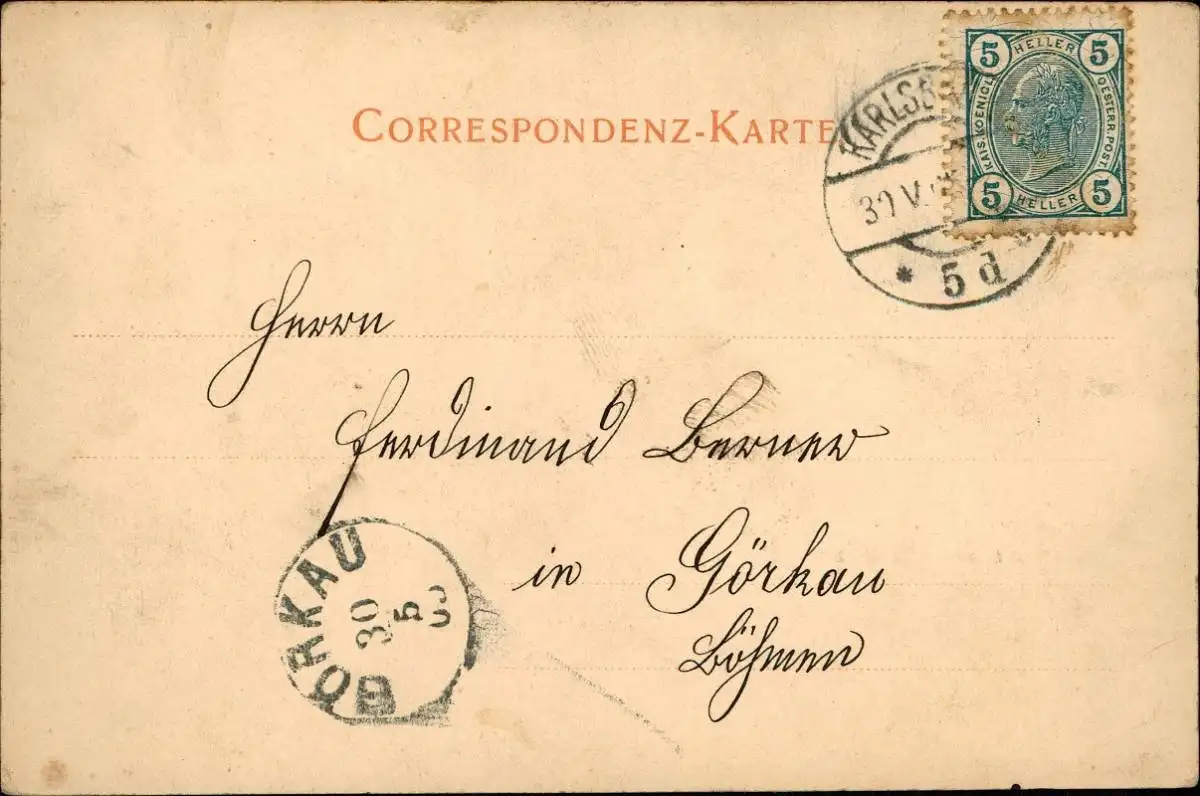 CORRESPONDENZ-KARTE
5 HELLER 5
KAIS. KOENIGL. OESTERR. POST.
5 HELLER 5
KARLSB
30 V.
* 5 d
Herrn
Ferdinand Berner
in Görkau
Böhmen
GÖRKAU
30
5